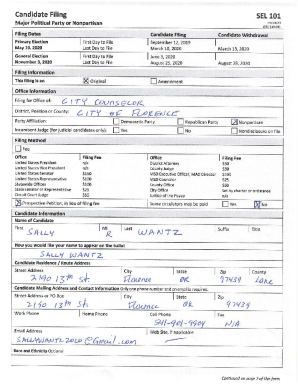 Candidate Filing
SEL 101
Major Political Party or Nonpartisan
Filing Dates Candidate Filing Candidate Withdrawal
Primary Election First Day to File September 12, 2019
May 19, 2020 Last Day to File March 10, 2020 March 13, 2020
General Election First Day to File June 3, 2020
November 3, 2020 Last Day to File August 25, 2020 August 28, 2020
Filing Information
This filing is an Original Amendment
Office Information
Filing for Office of: CITY COUNSELOR
District, Position or County: CITY OF FLORENCE
Party Affiliation: Democratic Party Republican Party Nonpartisan
Incumbent Judge (for judicial candidates only): Yes No Nondisclosure on file
Filing Method
Fee
Office Filing Fee Office Filing Fee
United States President n/a District Attorney $50
United States Vice President n/a County Judge $50
United States Senator $150
United States Representative $100 $25
Statewide Office $100 County Office $50
$25 City Office Set by charter or ordinance
Circuit Court Judge $50 Justice of the Peace n/a
Prospective Petition, in lieu of filing fee Some circulators may be paid Yes No
Candidate Information
Name of Candidate
First MI Last Suffix Title
SALLY R WANTZ
How you would like your name to appear on the ballot
SALLY WANTZ
Candidate Residence / Route Address
Street Address City State Zip County
2190 13th St. Florence OR 97439 LANE
Candidate Mailing Address and Contact Information Only one phone number and email is required.
Street Address or PO Box City State Zip
2190 13th St. Florence OR 97439
Work Phone Home Phone Cell Phone Fax
541-901-9904 N/A
Email Address Web Site, if applicable
SALLYWANTZ2020@Gmail.com
Race and Ethnicity Optional
Continued on page 2 of this form